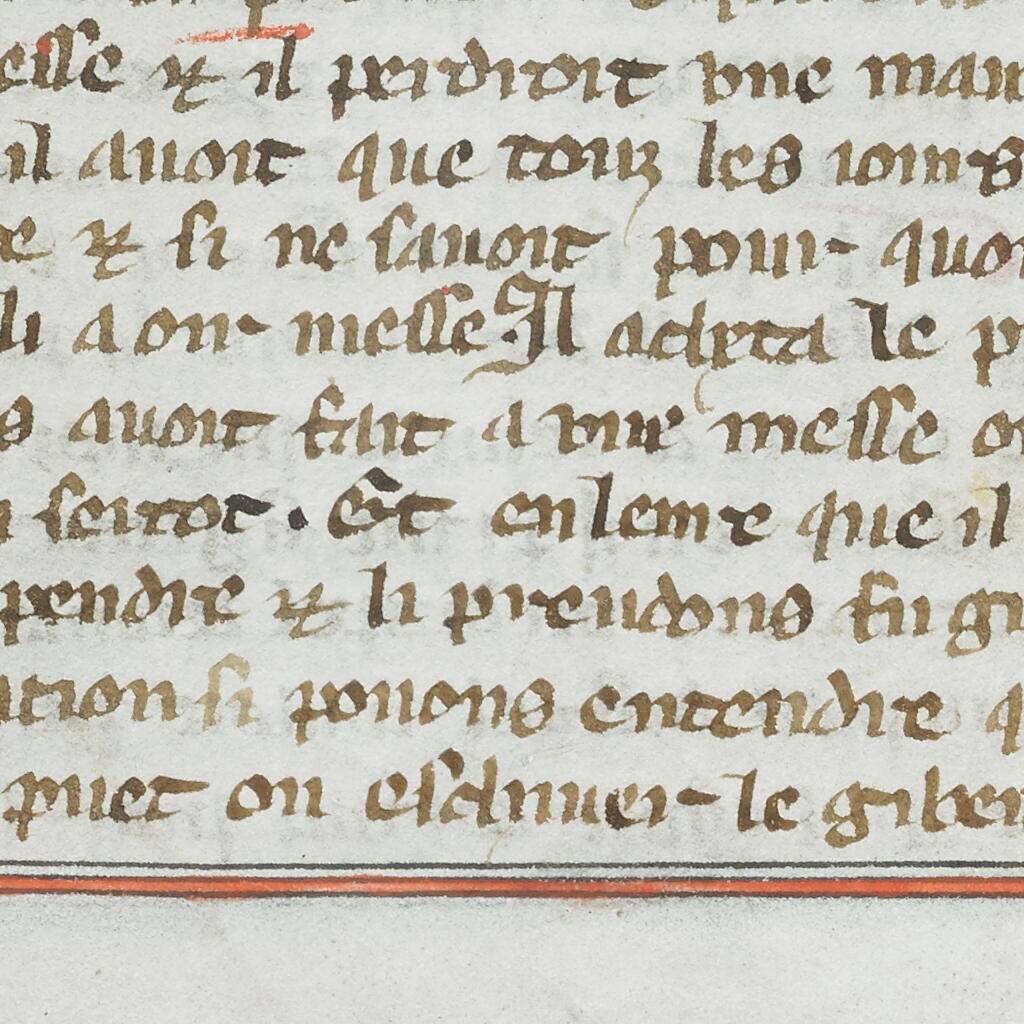 esse & il perdroit une man
il auoit que touz les iours
& si ne sauoit pour quoi
li a oir messe. Il acheta le p
s auoit fait a une messe o
seruoit. Et en leure que il
pendre & li preudons fu
ation si poons entendre q
puet on eschiuer le giber